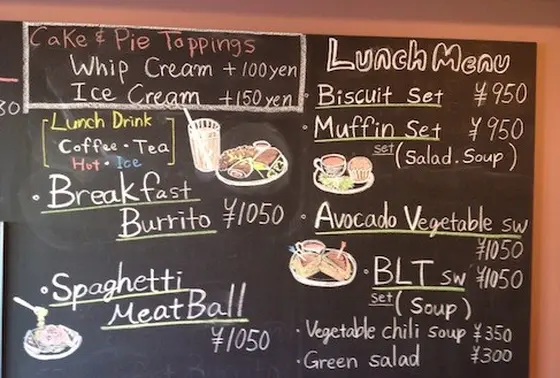 Cake & Pie Toppings
Whip Cream +100yen
Ice Cream +150yen
Lunch Drink
Coffee・Tea
Hot・Ice
・Breakfast
Burrito ¥1050
・Spaghetti
MeatBall
¥1050
Lunch Menu
・Biscuit Set ¥950
・Muffin Set ¥950
set (Salad.Soup)
・Avocado Vegetable SW
¥1050
・BLT SW ¥1050
set (Soup)
・Vegetable chili soup ¥350
・Green salad ¥300